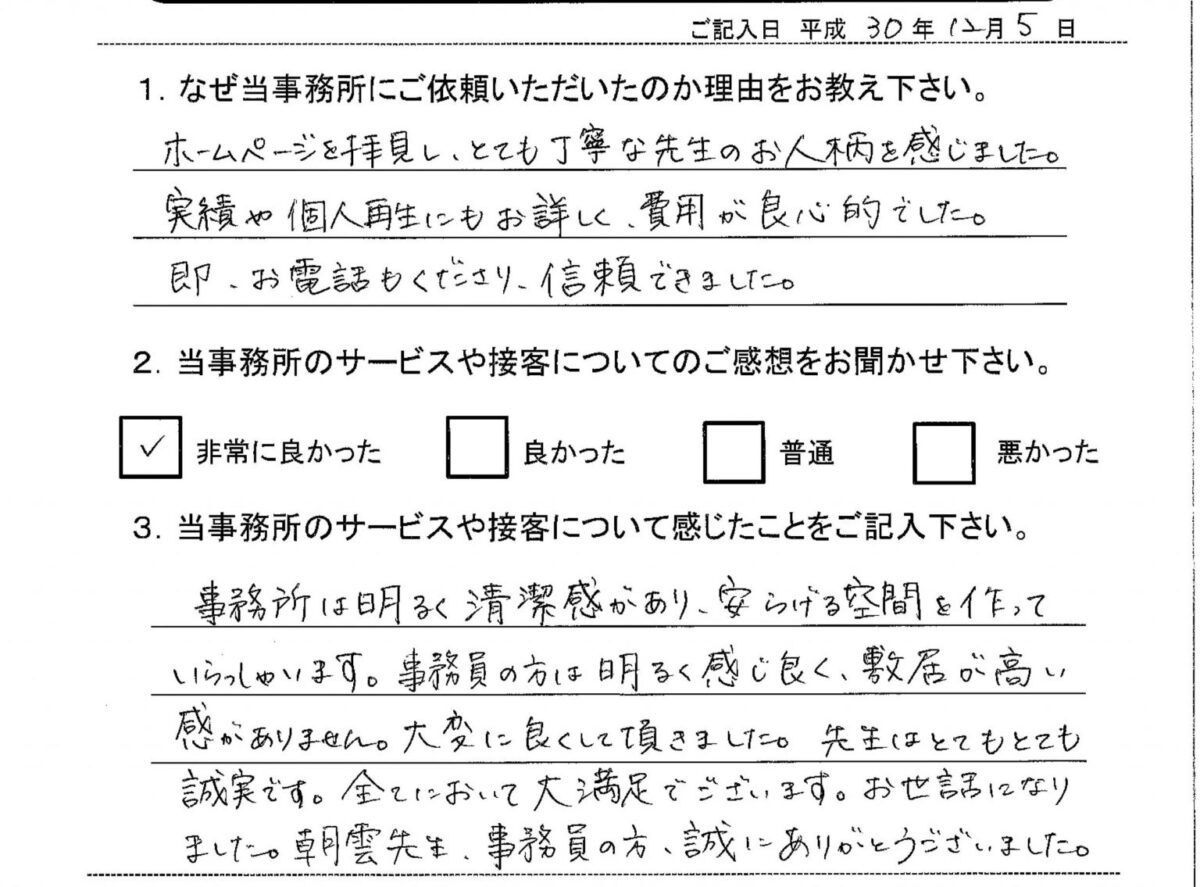 ご記入日 平成 30年 12月 5日
1. なぜ当事務所にご依頼いただいたのか理由をお教え下さい。
ホームページを拝見し、とても丁寧な先生のお人柄を感じました。
実績や個人再生にもお詳しく、費用が良心的でした。
即、お電話もくださり、信頼できました。
2. 当事務所のサービスや接客についてのご感想をお聞かせ下さい。
✓ 非常に良かった 良かった 普通 悪かった
3. 当事務所のサービスや接客について感じたことをご記入下さい。
事務所は明るく清潔感があり、安らげる空間を作って
いらっしゃいます。事務員の方は明るく感じ良く、敷居が高い
感がありません。大変に良くして頂きました。先生はとてもとても
誠実です。全てにおいて大満足でございます。お世話になり
ました。朝雲先生、事務員の方、誠にありがとうございました。